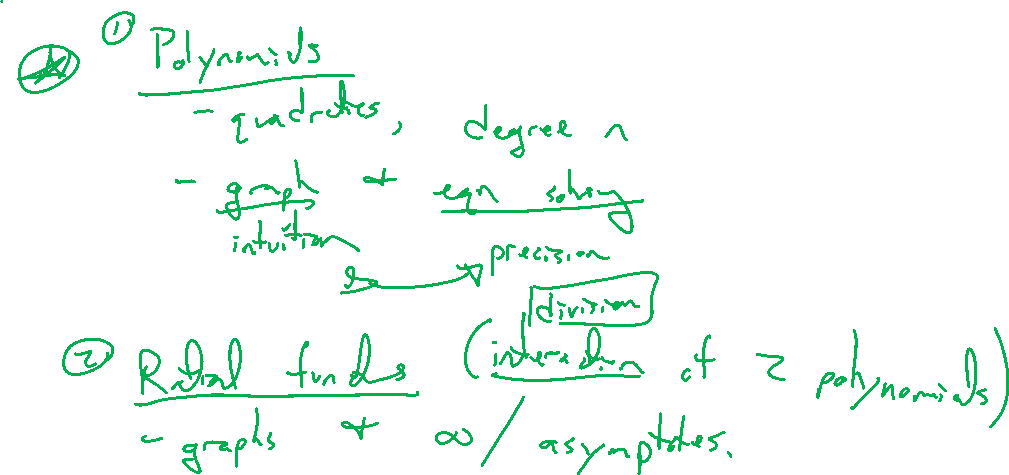 ① Polynomials
- quadratics, degree n
- graph + eqn solving
intuition precision
division
② Rational functions (interaction of 2 polynomials)
- graphs + ∞ / asymptotes.